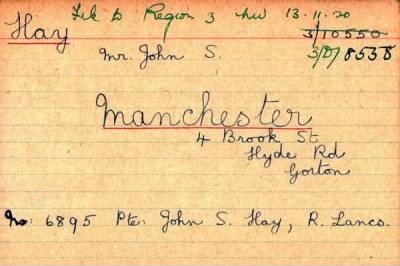 File to Region 3 13.11.20
Hay 3/10550
Mr. John S. 3/D/8538
Manchester
4 Brook St
Hyde Rd
Gorton
No: 6895 Pte: John S. Hay, R. Lancs.